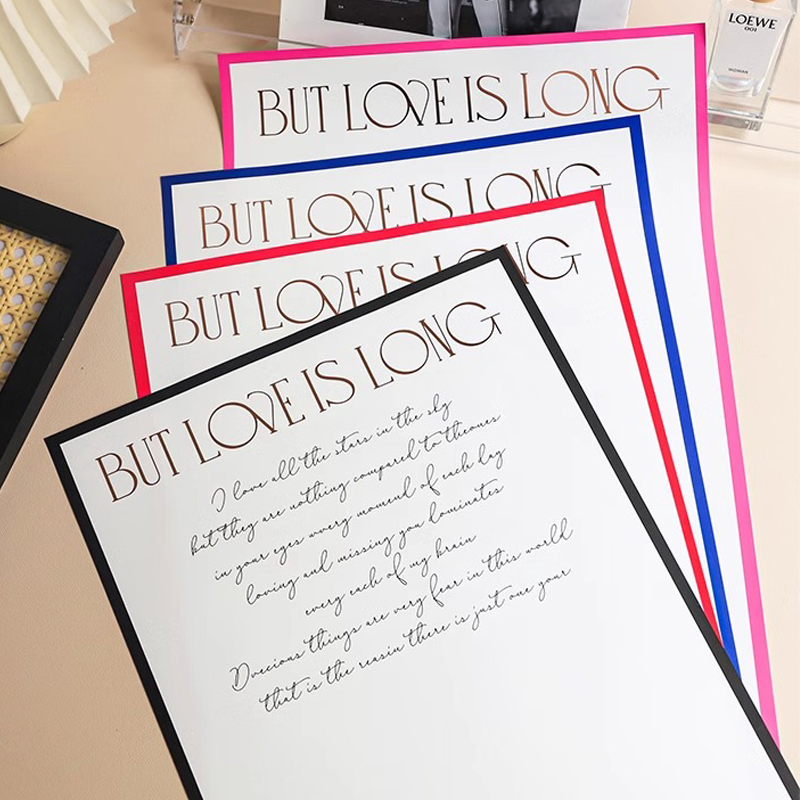 LOEWE
001
WOMAN
BUT LOVE IS LONG
BUT LOVE IS LONG
BUT LOVE IS LONG
BUT LOVE IS LONG
I love all the stars in the sky
but they are nothing compared to theones
in your eyes wvery momend of each day
loving and missing you dominates
every each of my brain
Dvecious things are very fear in this world
that is the reasin there is just one your